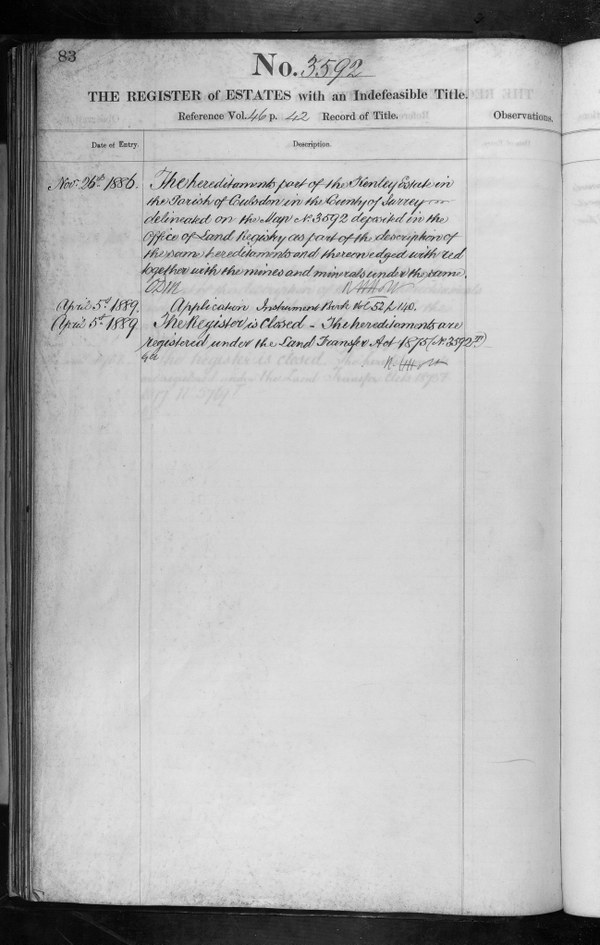 83
No. 3592
THE REGISTER of ESTATES with an Indefeasible Title.
Reference Vol. 46 p. 42 Record of Title.
Observations.
Date of Entry.
Description.
Nov. 26th 1886. The hereditaments part of the Kenley Estate in
the Parish of Coulsdon in the County of Surrey
delineated on the Map No. 3592 deposited in the
Office of Land Registry as part of the description of
the same hereditaments and thereon edged with red
together with the mines and minerals under the same.
April 5th 1889. Application Instrument Book Vol. 52 p. 140.
April 5th 1889. The Register is Closed - The hereditaments are
registered under the Land Transfer Act 1875 (No 3592